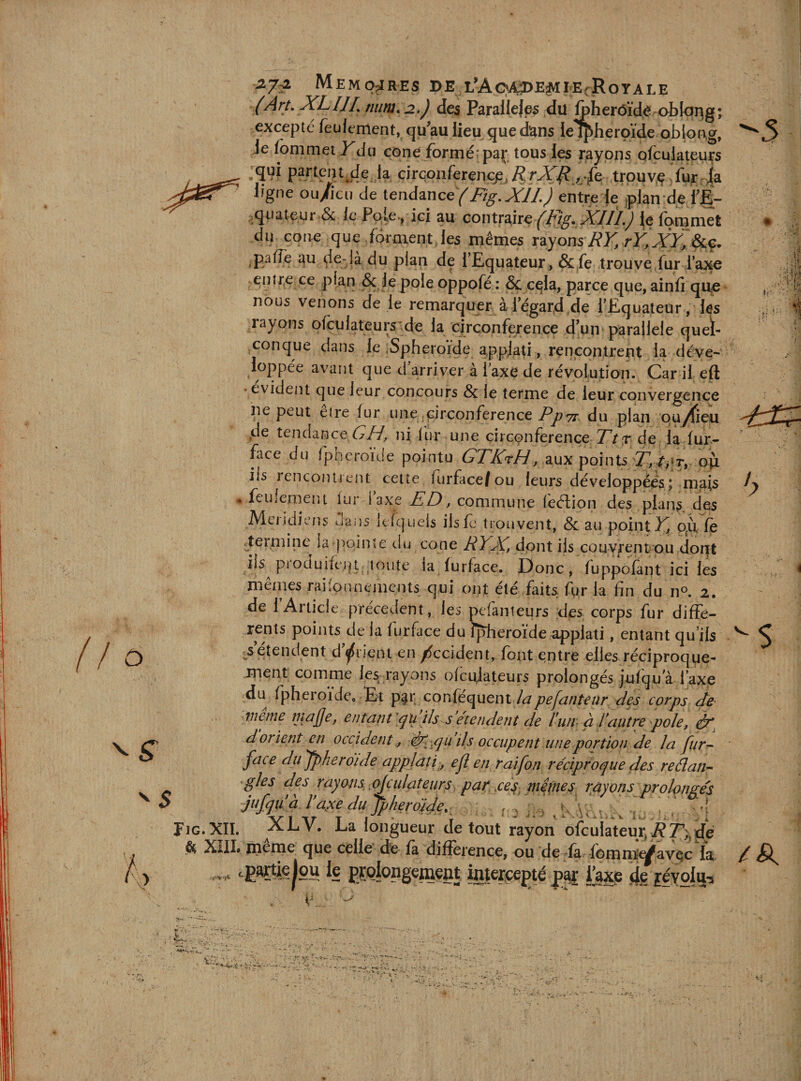 272 MEMOIRES DE L'ACADEMIE ROYALE
(Art. XLIII. num. 2.) des Paralleles du spheroïde oblong;
excepté seulement, qu'au lieu que dans le spheroïde oblong,
le sommet Y du cone formé par tous les rayons osculateurs
qui partent de la circonference RrXR, se trouve sur la
ligne ou/ieu de tendance (Fig. XII.) entre le plan de l'E-
quateur & le Pole, ici au contraire (Fig. XIII.) le sommet
du cone que forment les mêmes rayons RY, rY, XY, &c.
passe au de-là du plan de l'Equateur, & se trouve sur l'axe
entre ce plan & le pole opposé: & cela, parce que, ainsi que
nous venons de le remarquer à l'égard de l'Equateur, les
rayons osculateurs de la circonference d'un parallele quel-
conque dans le Spheroïde applati, rencontrent la déve-
loppée avant que d'arriver à l'axe de révolution. Car il est
évident que leur concours & le terme de leur convergence
ne peut être sur une circonference Ppπ du plan ou/ieu
de tendance GH, ni sur une circonference Ttτ de la sur-
face du spheroïde pointu GTKτH, aux points T, t, τ, où
ils rencontrent cette surface/ ou leurs développées; mais
seulement sur l'axe ED, commune section des plans des
Meridiens dans lesquels ils se trouvent, & au point Y, où se
termine la pointe du cone RYX, dont ils couvrent ou dont
ils produisent toute la surface. Donc, supposant ici les
mêmes raisonnements qui ont été faits sur la fin du n°. 2.
de l'Article précedent, les pesanteurs des corps sur diffe-
rents points de la surface du spheroïde applati, entant qu'ils
s'étendent d'/rient en /ccident, sont entre elles réciproque-
ment comme les rayons osculateurs prolongés jusqu'à l'axe
du spheroïde. Et par conséquent la pesanteur des corps de
même masse, entant qu'ils s'étendent de l'un à l'autre pole, &
d'orient en occident, & qu'ils occupent une portion de la sur-
face du spheroïde applati, est en raison réciproque des rectan-
gles des rayons osculateurs par ces mêmes rayons prolongés
jusqu'à l'axe du spheroïde.
FIG. XII. XLV. La longueur de tout rayon osculateur, RT, de
& XIII. même que celle de sa différence, ou de sa somme/avec la
partie | ou le prolongement intercepté par l'axe de révolu-